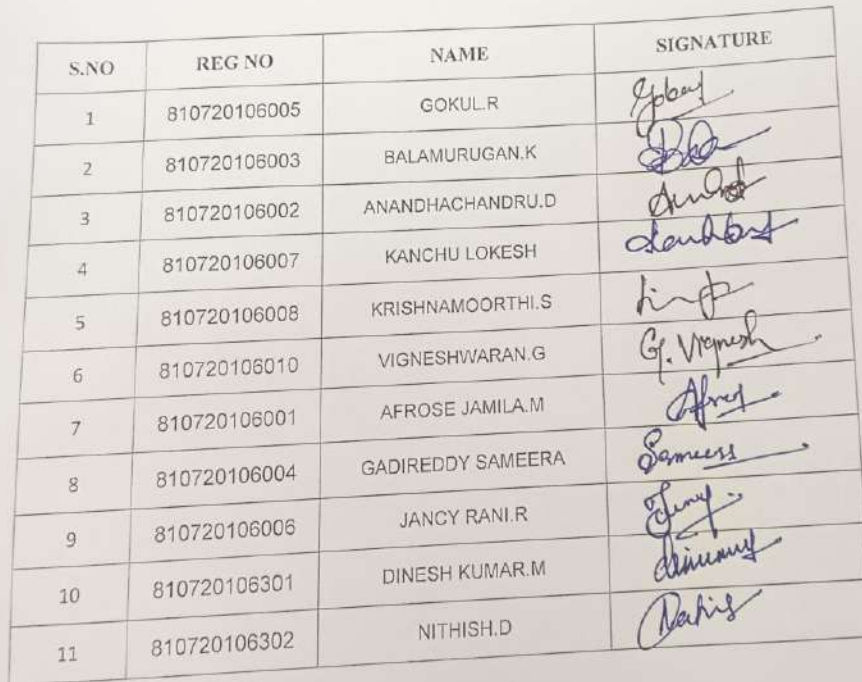 S.NO REG NO NAME SIGNATURE
1 810720106005 GOKUL.R
2 810720106003 BALAMURUGAN.K
3 810720106002 ANANDHACHANDRU.D
4 810720106007 KANCHU LOKESH
5 810720106008 KRISHNAMOORTHI.S
6 810720106010 VIGNESHWARAN.G G. Vignesh
7 810720106001 AFROSE JAMILA.M
8 810720106004 GADIREDDY SAMEERA
9 810720106006 JANCY RANI.R
10 810720106301 DINESH KUMAR.M
11 810720106302 NITHISH.D